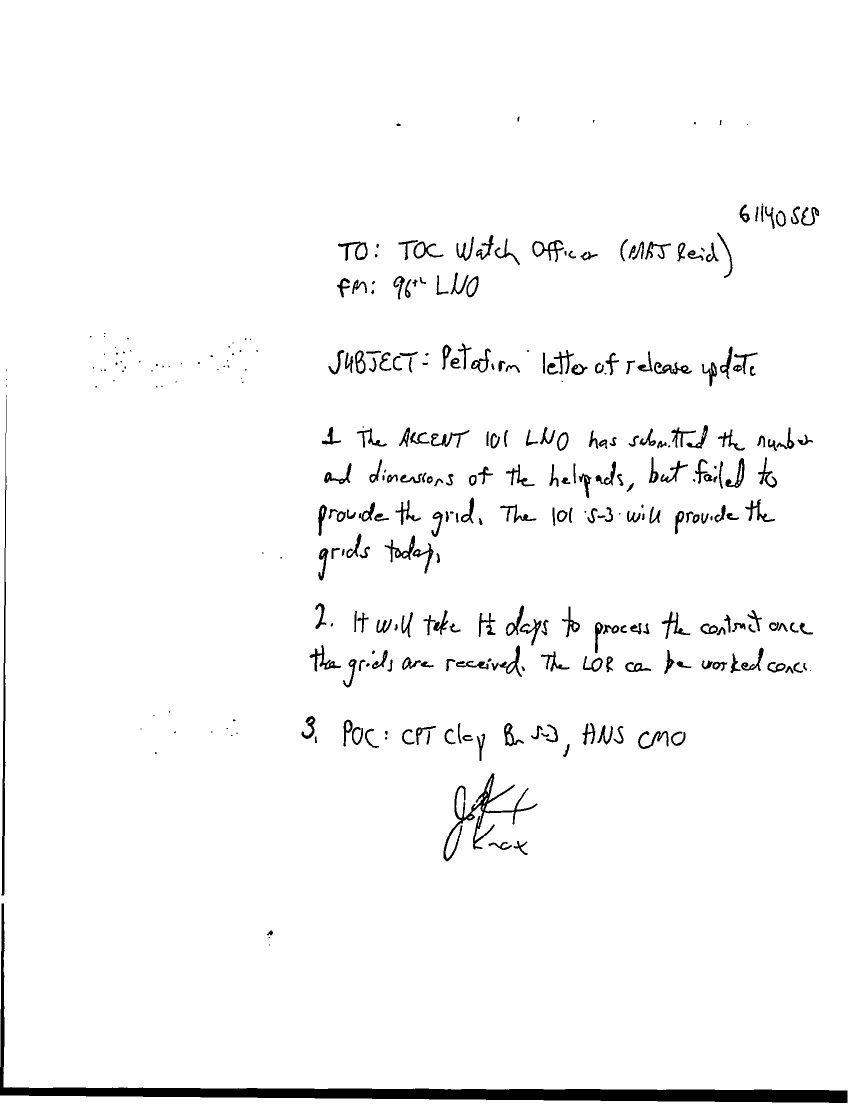 61140 SEP
TO: TOC Watch Officer (MAJ Reid)
FM: 96th LNO
SUBJECT: Petrofirm letter of release update
1 The ARCENT 101 LNO has submitted the number
and dimensions of the helipads, but failed to
provide the grid. The 101 S-3 will provide the
grids today.
2. It will take 1½ days to process the contract once
the grids are received. The LOR can be worked conc
3. POC: CPT Clay Bn S-3, HNS CMO
Knox